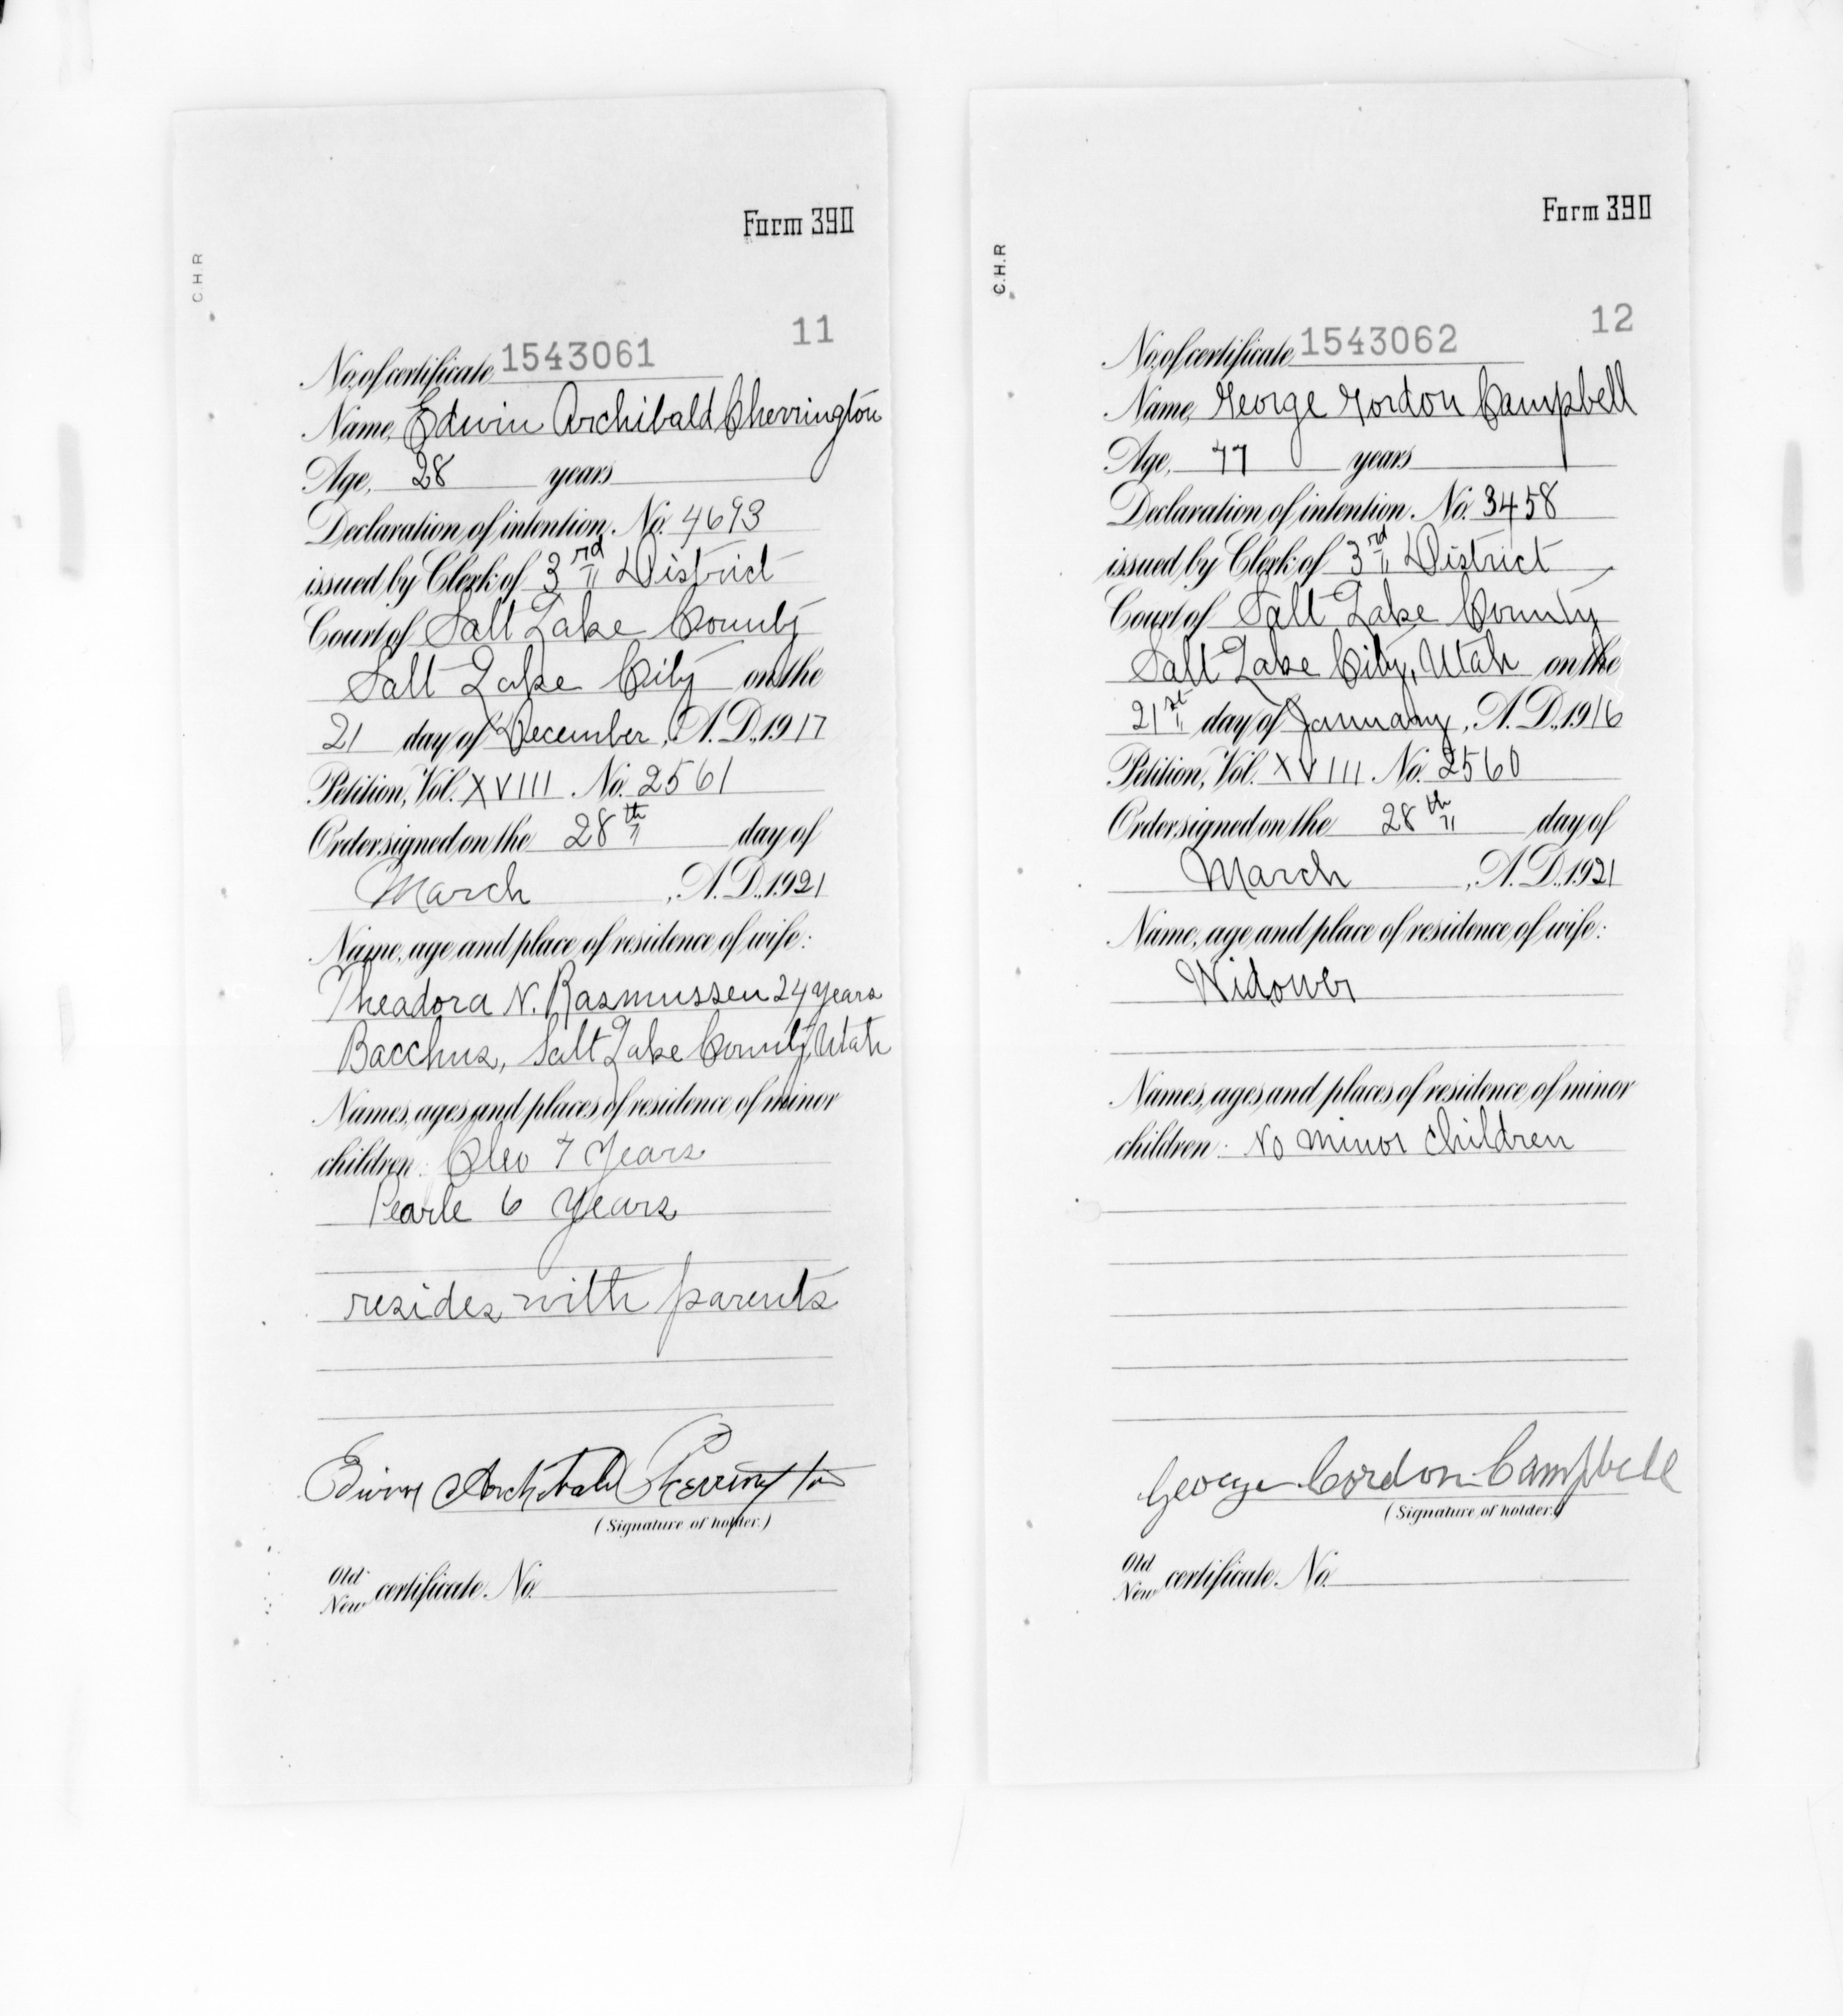 Form 390
C.H.R
11
No. of certificate 1543061
Name, Edwin Archibald Cherrington
Age, 28 years
Declaration of intention. No. 4693
issued by Clerk of 3rd District
Court of Salt Lake County
Salt Lake City on the
21 day of December, A.D., 1917
Petition, Vol. XVIII No. 2561
Order signed on the 28th day of
March, A.D., 1921
Name, age and place of residence of wife:
Theadora N. Rasmussen 24 years
Bacchus, Salt Lake County, Utah
Names, ages and places of residence of minor
children: Cleo 7 Years
Pearle 6 Years
resides with parents
Edwin Archibald Cherrington
(Signature of holder.)
Old
New certificate. No.
Form 390
C.H.R
12
No. of certificate 1543062
Name, George Gordon Campbell
Age, years
Declaration of intention. No. 3458
issued by Clerk of 3rd District
Court of Salt Lake County
Salt Lake City, Utah on the
21st day of January, A.D., 1916
Petition, Vol. XVIII No. 2560
Order signed on the 28th day of
March, A.D., 1921
Name, age and place of residence of wife:
Widower
Names, ages and places of residence of minor
children: No minor children
George Gordon Campbell
(Signature of holder.)
Old
New certificate. No.